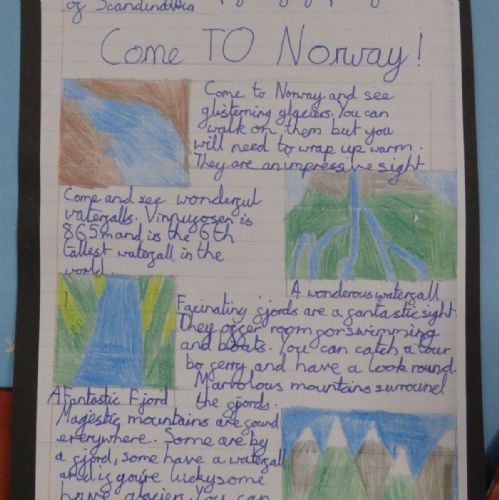 of Scandinavia
Come TO Norway!
Come to Norway and see
glisterning glaciers. You can
walk on them but you
will need to wrap up warm.
They are an impressive sight
Come and see wonderful
waterfalls. Vinnufossen is
865m and is the 6th
tallest waterfall in the
world.
A wonderous waterfall
Facinating fjords are a fantastic sight.
They offer room for swimming
and boats. You can catch a tour
by ferry and have a look round.
Marvolous mountains surround
the fjords.
A Fantastic Fjord
Majestic mountains are found
everywhere. Some are by
a fjord, some have a waterfall
and if you're lucky some
have glaciers. You can